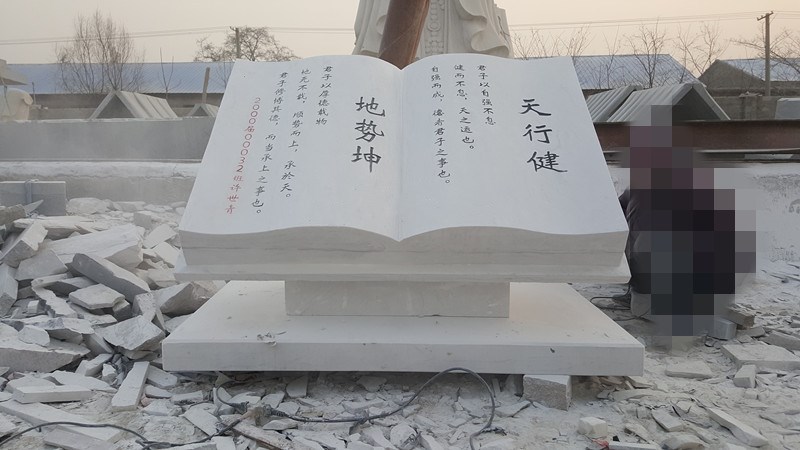 天行健
君子以自强不息
健而不息，天之道也。
自强而成，德者君子之事也。
地势坤
君子以厚德载物
地无不载，顺势而上，承於天。
君子修博其德，而当承上之事也。
2000届00032班